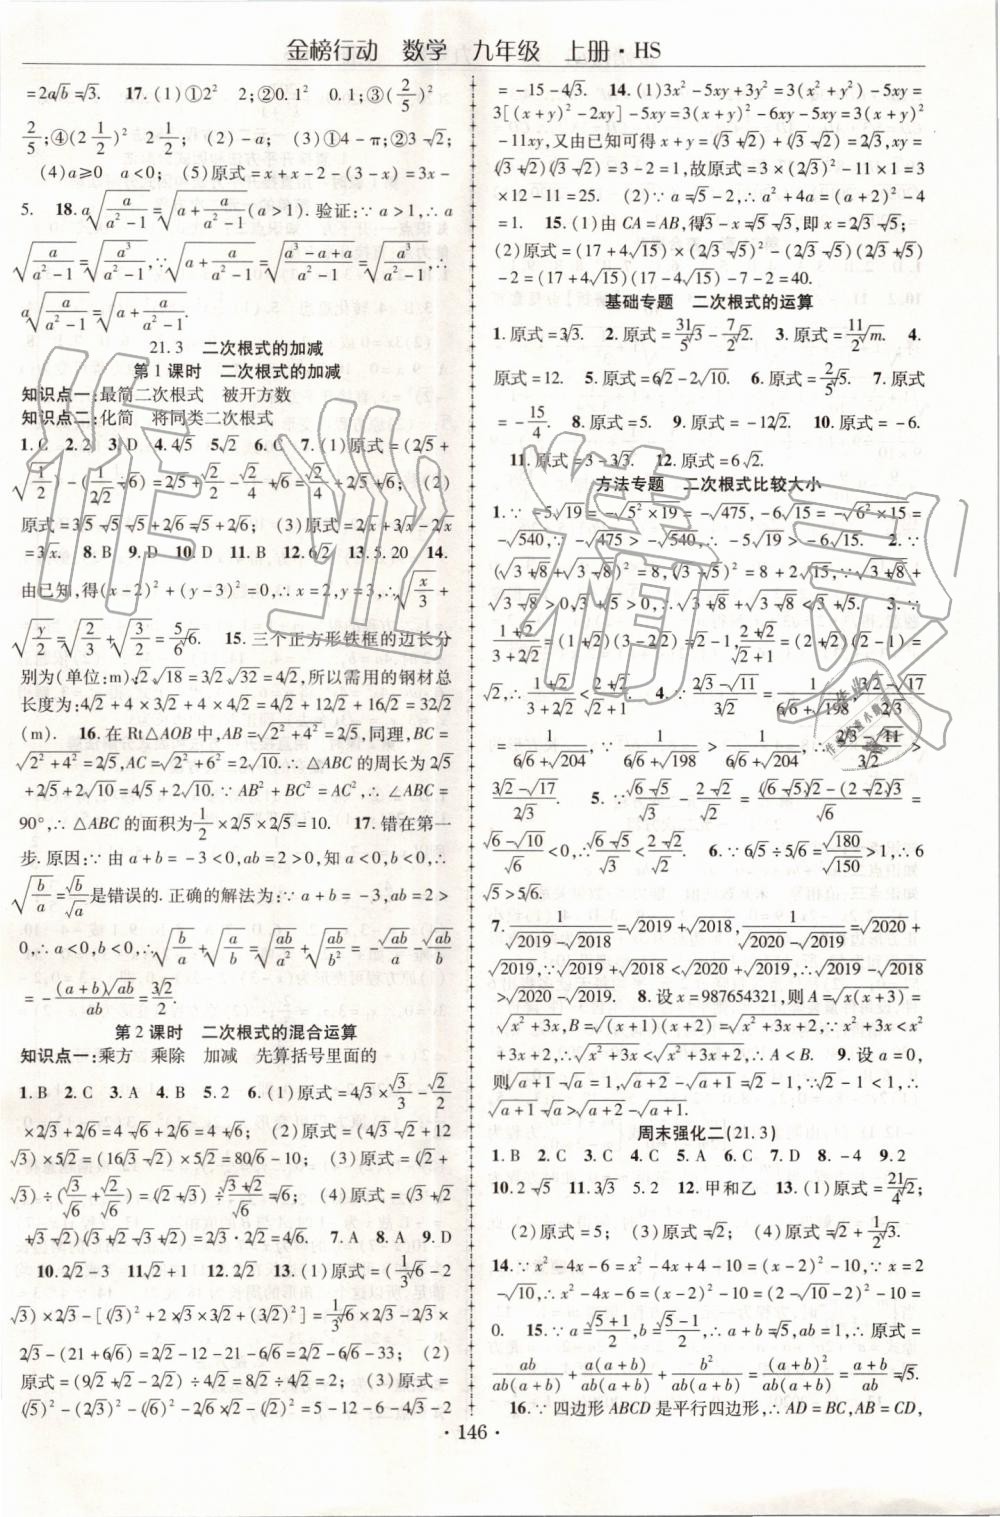 金榜行动　数学　九年级　上册·HS
=2a√b=√3. 17.(1)①2² 2;②0.1² 0.1;③(2/5)²
2/5;④(2 1/2)² 2 1/2; (2)-a; (3)①4-π;②3√2;
(4)a≥0 a<0; (5)原式=x+x-2-(3-x)=3x-
5. 18.a√(a/(a²-1))=√(a+a/(a²-1))(a>1). 验证:∵a>1,∴a
√(a/(a²-1))=√(a³/(a²-1)),∵√(a+a/(a²-1))=√((a³-a+a)/(a²-1))=√(a³/(a²-1)),∴
a√(a/(a²-1))=√(a+a/(a²-1)).
21.3 二次根式的加减
第1课时 二次根式的加减
知识点一:最简二次根式 被开方数
知识点二:化简 将同类二次根式
1.C 2.2 3.D 4.4√5 5.√2 6.C 7.(1)原式=(2√5+
原式=3√5-√5+2√6-√5+2√6; (3)原式=2√x+3√x-2√x
=3√x. 8.B 9.D 10.D 11.B 12.6√2 13.5.20 14.
由已知,得(x-2)²+(y-3)²=0,∴x=2,y=3,∴√(x/3)+
√(y/2)=√(2/3)+√(3/2)=5/6√6. 15.三个正方形铁框的边长分
别为(单位:m)√2,√18=3√2,√32=4√2,所以需用的钢材总
长度为:4√2+4×3√2+4×4√2=4√2+12√2+16√2=32√2
(m). 16.在Rt△AOB中,AB=√(2²+4²)=2√5,同理,BC=
√(2²+4²)=2√5,AC=√(2²+6²)=2√10.∴△ABC的周长为2√5
+2√5+2√10=4√5+2√10.∵AB²+BC²=AC²,∴∠ABC=
90°,∴△ABC的面积为1/2×2√5×2√5=10. 17.错在第一
步.原因:∵由a+b=-3<0,ab=2>0,知a<0,b<0,∴
√(b/a)=√b/√a是错误的.正确的解法为:∵a+b=-3,ab=2>
0,∴a<0,b<0,∴√(b/a)+√(a/b)=√(ab/a²)+√(ab/b²)=-√ab/a-√ab/b
=-(a+b)√ab/ab=3√2/2.
第2课时 二次根式的混合运算
知识点一:乘方 乘除 加减 先算括号里面的
1.B 2.C 3.A 4.B 5.2 6.(1)原式=4√3×√3/3-√2/2
×2√3+2√6=4-√6+2√6=4+√6; (2)原式=(4√3-√2+12
√3)×5√2=(16√3-√2)×5√2=80√6-10; (3)原式=(√2+
√3)÷(√3/√6+√2/√6)=(√2+√3)÷(√3+√2)/√6=√6; (4)原式=(√3+√2
+√3-√2)(√3+√2-√3+√2)=2√3·2√2=4√6. 7.A 8.A 9.D
10.2√2-3 11.√2+1 12.2√2 13.(1)原式=(1/3√6-2
√3)×2√3-[(√3)²+2×√3×3√2+(3√2)²]=1/3√6×2√3-2√3×
2√3-(21+6√6)=2√2-12-21-6√6=2√2-6√6-33; (2)
原式=(9√2+√2-2√2)÷4√2=8√2÷4√2=2; (3)原式=
(√5)²-(2√3)²-(√6-√2)²=5-12-6+4√3-2
=-15-4√3. 14.(1)3x²-5xy+3y²=3(x²+y²)-5xy=
3[(x+y)²-2xy]-5xy=3(x+y)²-6xy-5xy=3(x+y)²
-11xy,又由已知可得x+y=(√3+√2)+(√3-√2)=2√3,xy=
(√3+√2)(√3-√2)=3-2=1,故原式=3×(2√3)²-11×1=3
×12-11=25. (2)∵a=√5-2,∴a²+4a=(a+2)²-4=
1. 15.(1)由CA=AB,得√3-x=√5-√3,即x=2√3-√5;
(2)原式=(17+4√15)×(2√3-√5)²-(2√3-√5)(2√3+√5)
-2=(17+4√15)(17-4√15)-7-2=-40.
基础专题 二次根式的运算
1.原式=3√3. 2.原式=31/5√3-7/2√2. 3.原式=11/2√m. 4.
原式=12. 5.原式=6√2-2√10. 6.原式=2/5√5. 7.原式
=-15/4. 8.原式=2√3-1. 9.原式=-12√2. 10.原式=-6.
11.原式=3-3√3. 12.原式=6√2.
方法专题 二次根式比较大小
1.∵-5√19=-√(5²×19)=-√475,-6√15=-√(6²×15)=
-√540,∴-√475>-√540,∴-5√19>-6√15. 2.∵
3+2√2
√2,∴(1+√2)/(3+2√2)<(2+√2)/(√2+1). 4.∵(2√3-√11)/3√2=1/(6√6+√198),(3√2-√17)/2√3
=1/(6√6+√204),∵1/(6√6+√198)>1/(6√6+√204),∴(2√3-√11)/3√2>
(3√2-√17)/2√3. 5.∵(√6-√5)/√3-(2-√2)/√2=((√6-√5)√2-(2-√2)√3)/√6=
(√6-√10)/√6<0,∴(√6-√5)/√3<(2-√2)/√2. 6.∵6√5÷5√6=√180/√150>1,∴6
√5>5√6.
7.1/(√2019-√2018)=√2019+√2018,1/(√2020-√2019)=√2020+
√2019,∵√2019+√2018<√2020+√2019,∴√2019-√2018
>√2020-√2019. 8.设x=987654321,则A=√(x(x+3))=
√(x²+3x),B=√((x+1)(x+2))=√(x²+3x+2),∵x²+3x<
x²+3x+2,∴√(x²+3x)<√(x²+3x+2),∴A<B. 9.设a=0,
则√(a+1)-√a=1,√(a+2)-√(a+1)=√2-1,∵√2-1<1,∴
√(a+1)-√a>√(a+2)-√(a+1).
周末强化二(21.3)
1.B 2.C 3.C 4.C 5.A 6.C 7.D 8.-4 9.2
10.2-√5 11.3√3 5.2 12.甲和乙 13.(1)原式=21/4√2;
(2)原式=5; (3)原式=√2; (4)原式=√2+1/2√3.
14.∵x²-4x-6=x²-4x+4-10=(x-2)²-10,∵x=2
-√10,∴x²-4x-6=(x-2)²-10=(2-√10-2)²-10=
0. 15.∵a=(√5+1)/2,b=(√5-1)/2,∴a+b=√5,ab=1,∴原式=
ab/ab(a+b)+a(a+b)/ab(a+b)+b²/ab(a+b)=(a+b)²/ab(a+b)=(a+b)/ab=√5.
16.∵四边形ABCD是平行四边形,∴AD=BC,AB=CD,
·146·